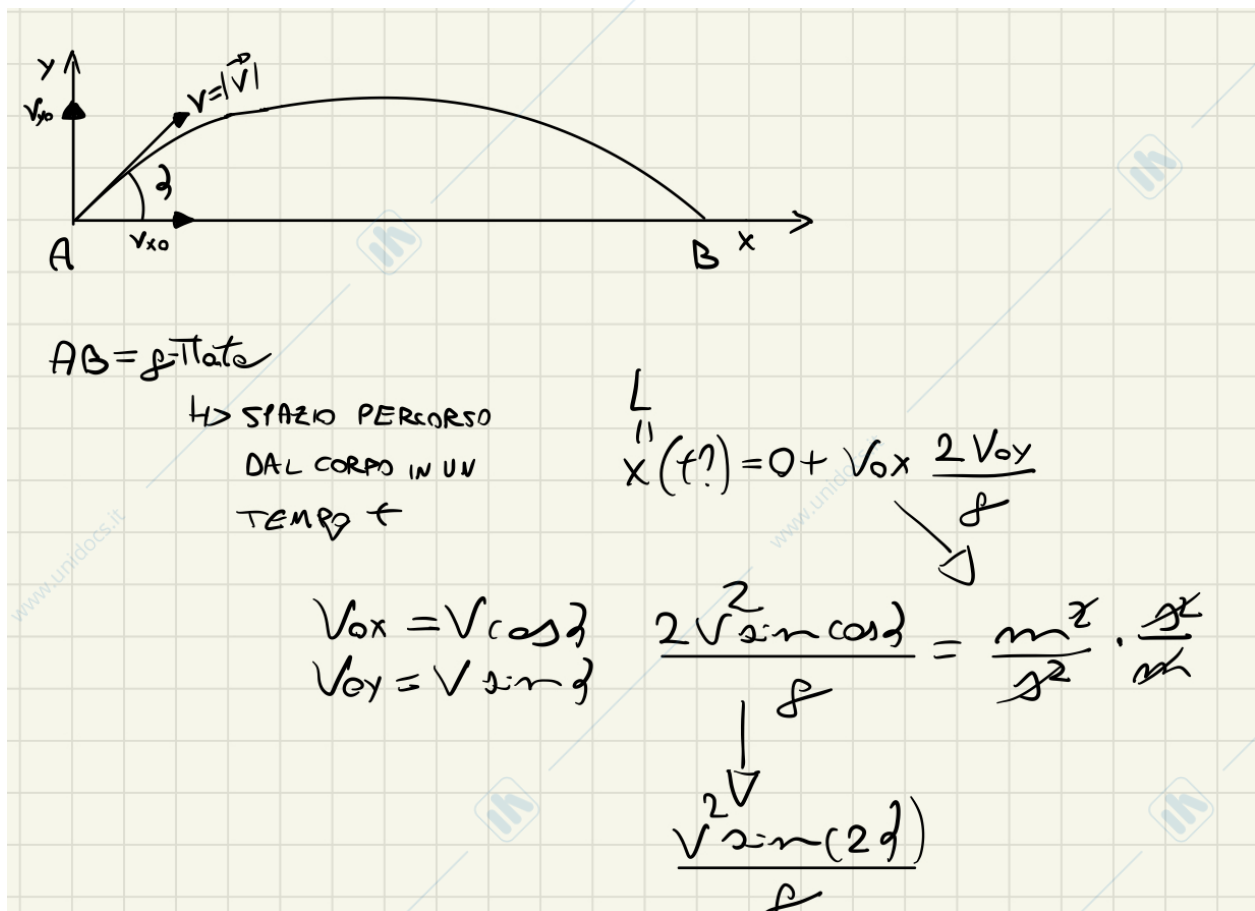 y
Vyo
v=|V|
α
A
Vxo
B x
AB = gittata
↳> SPAZIO PERCORSO
DAL CORPO IN UN
TEMPO t
L
"
x(t?) = 0 + Vox 2 Voy / g
Vox = V cosα
Voy = V sinα
2 V² sin cosα / g = m²/s² · s²/m
V² sin(2α) / g
www.unidocs.it
www.unidocs.it